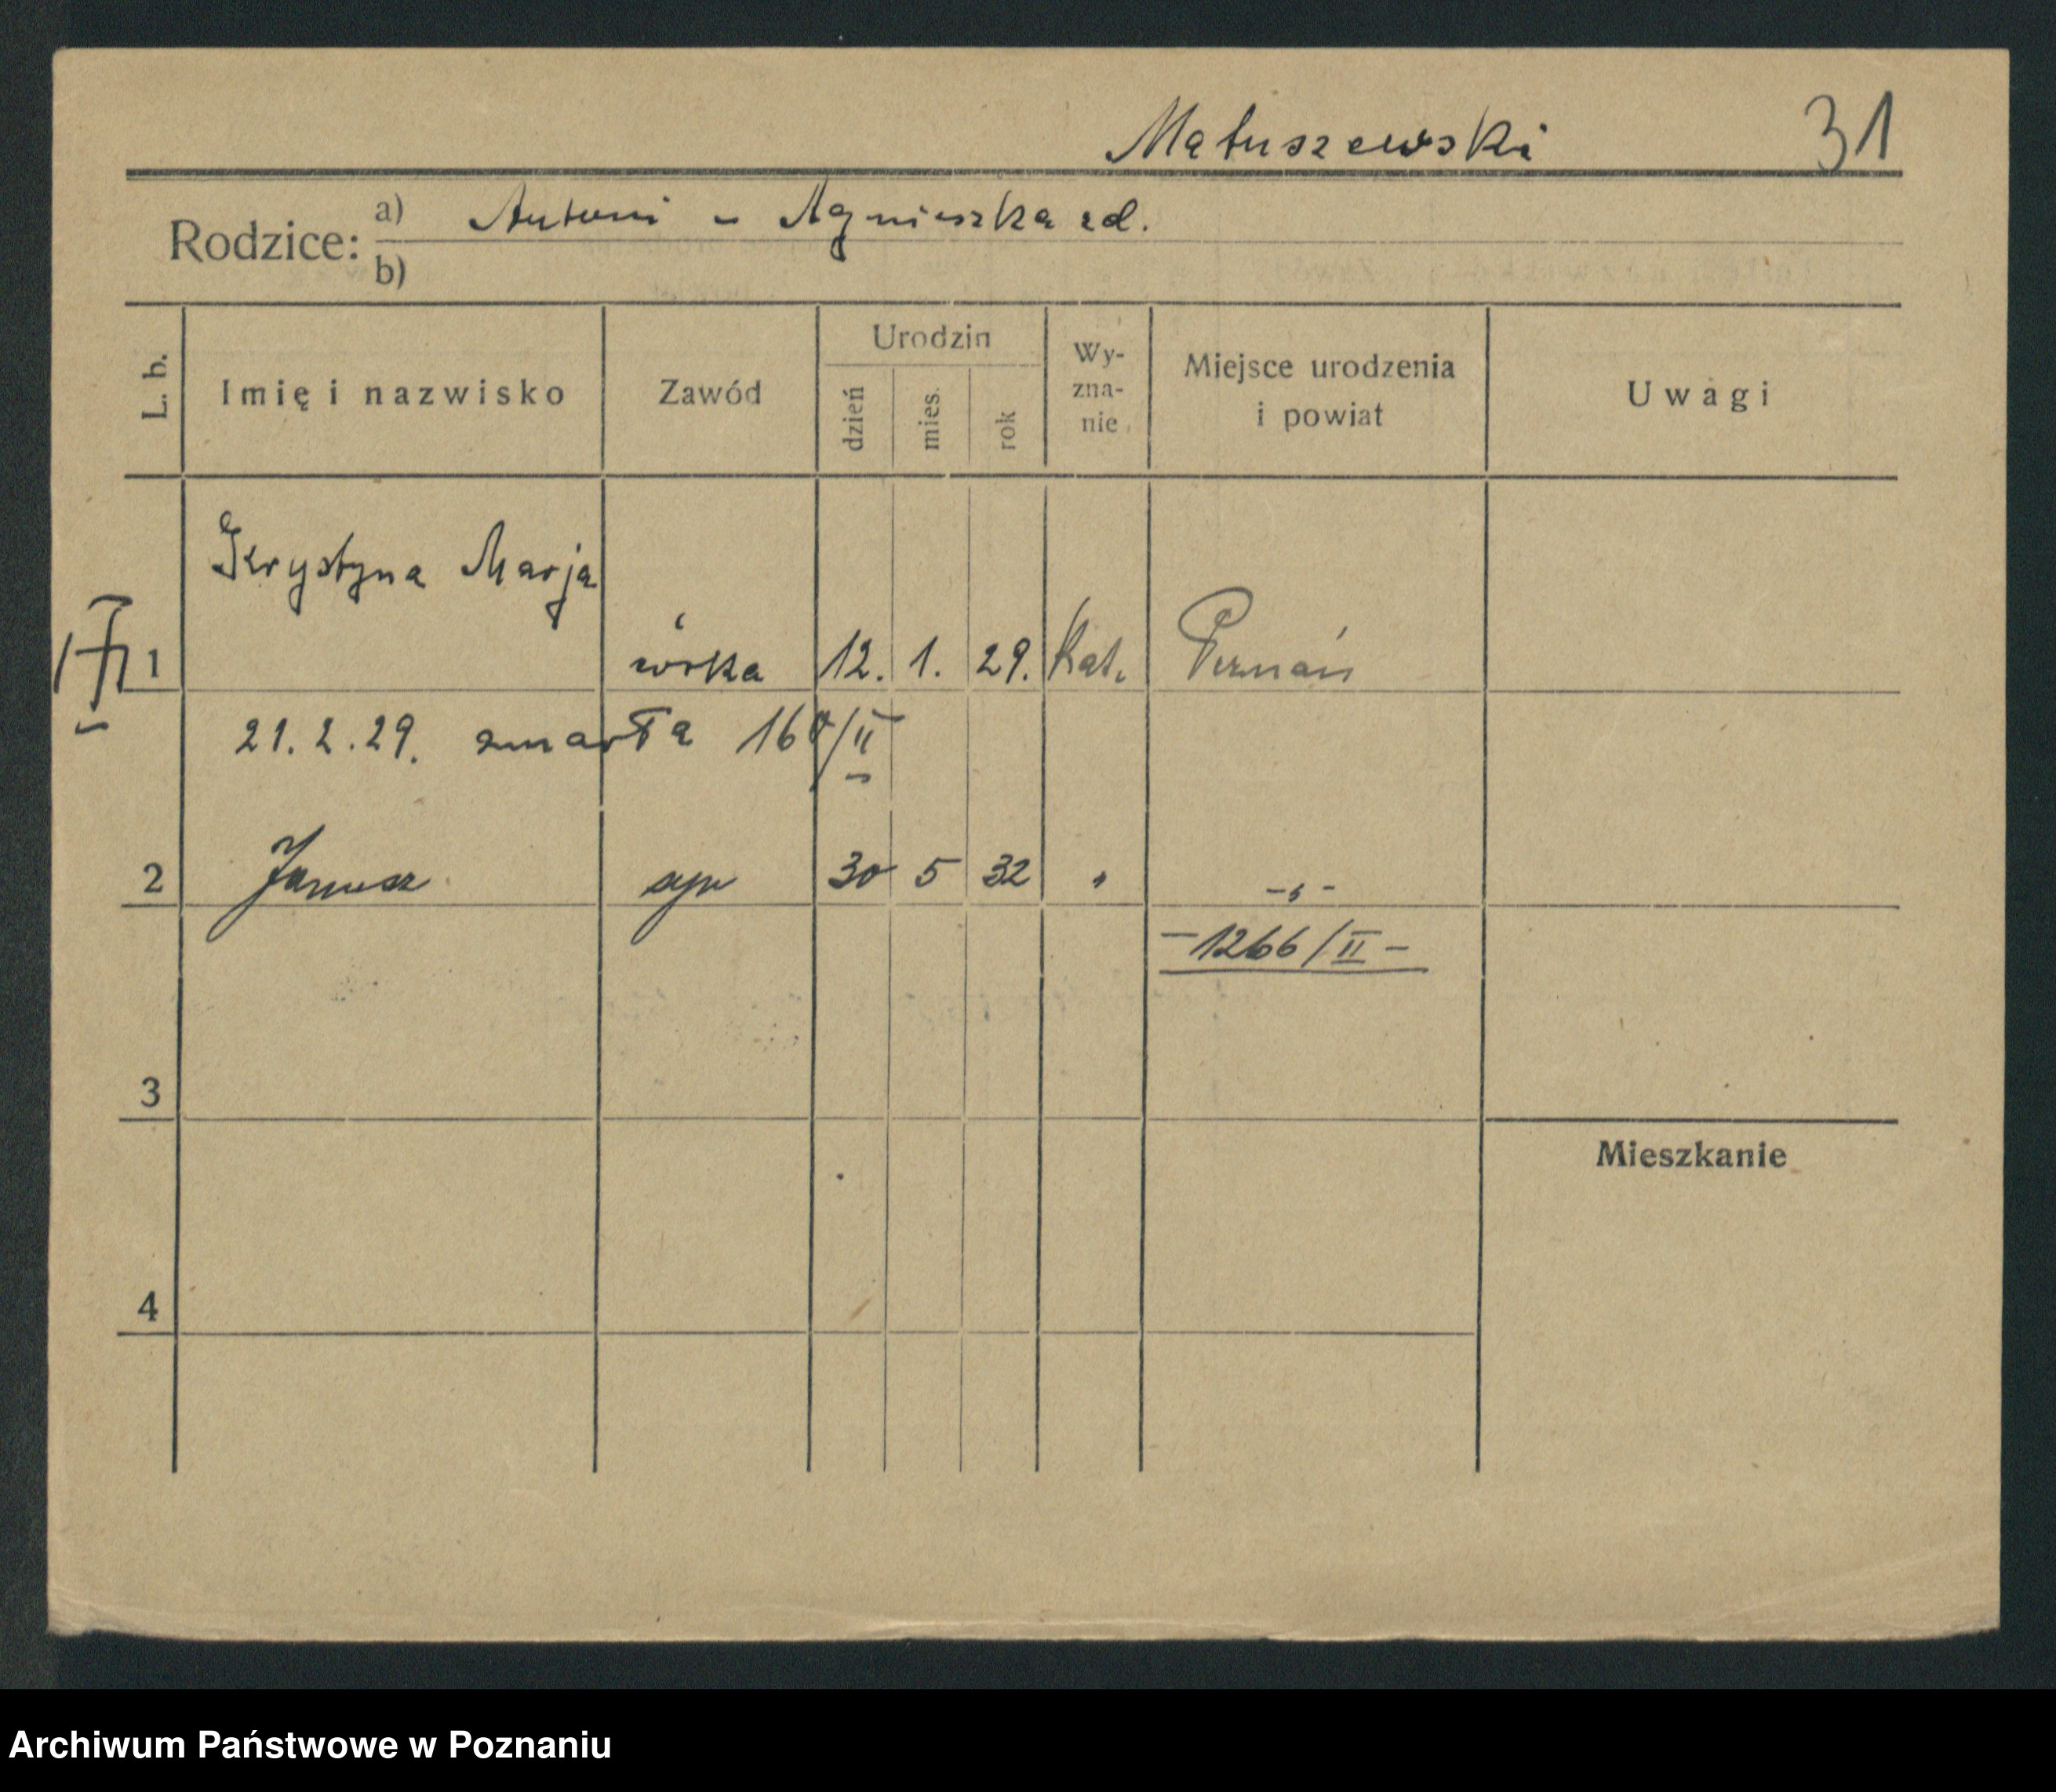 Matuszewski 31
Rodzice: a) Antoni - Agnieszka zd.
b)
L. b. Imię i nazwisko Zawód Urodzin dzień mies. rok Wy-zna-nie Miejsce urodzenia i powiat Uwagi
Krystyna Marja
1 córka 12. 1. 29. kat. Poznań
21.2.29. zmarła 160/II
2 Janusz syn 30 5 32 " -"-
-1266/II-
3
Mieszkanie
4
Archiwum Państwowe w Poznaniu